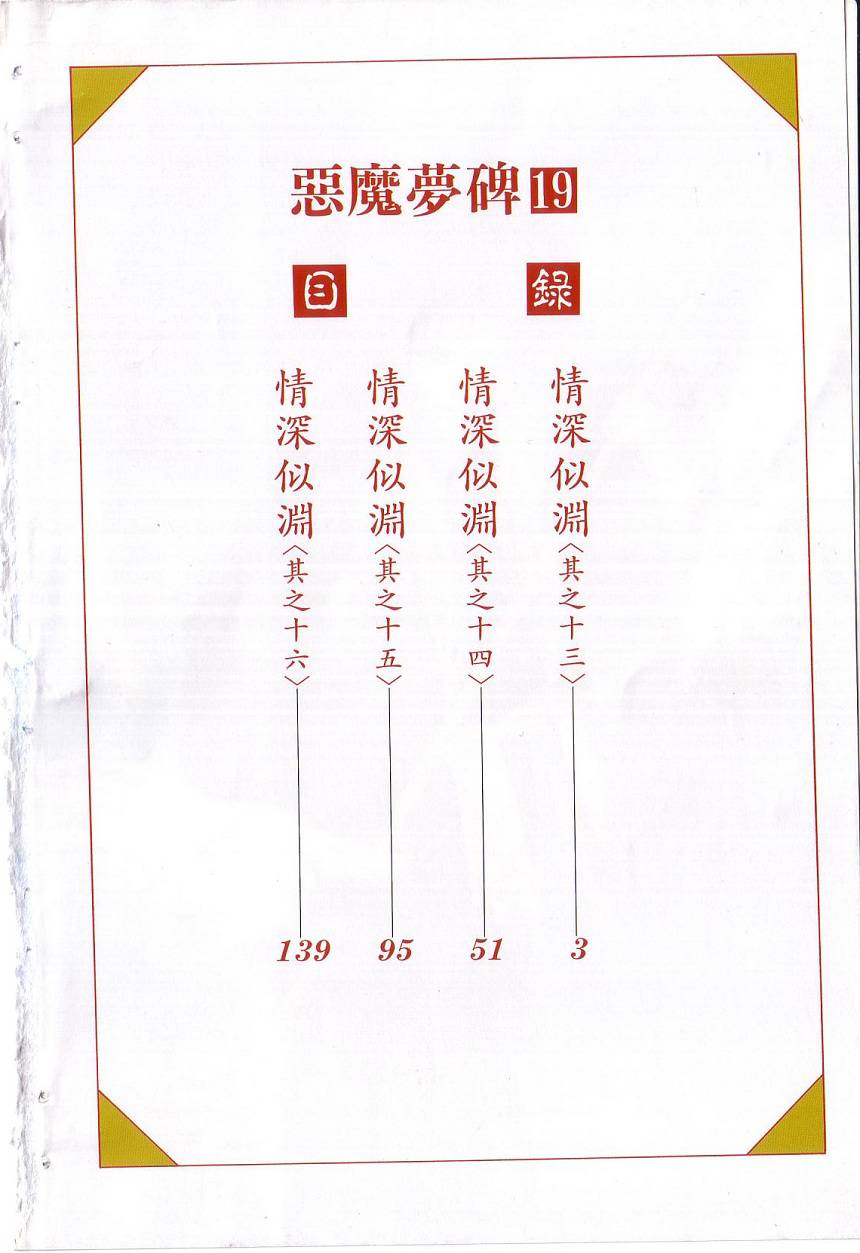 惡魔夢碑19
目錄
情深似淵〈其之十三〉3
情深似淵〈其之十四〉51
情深似淵〈其之十五〉95
情深似淵〈其之十六〉139